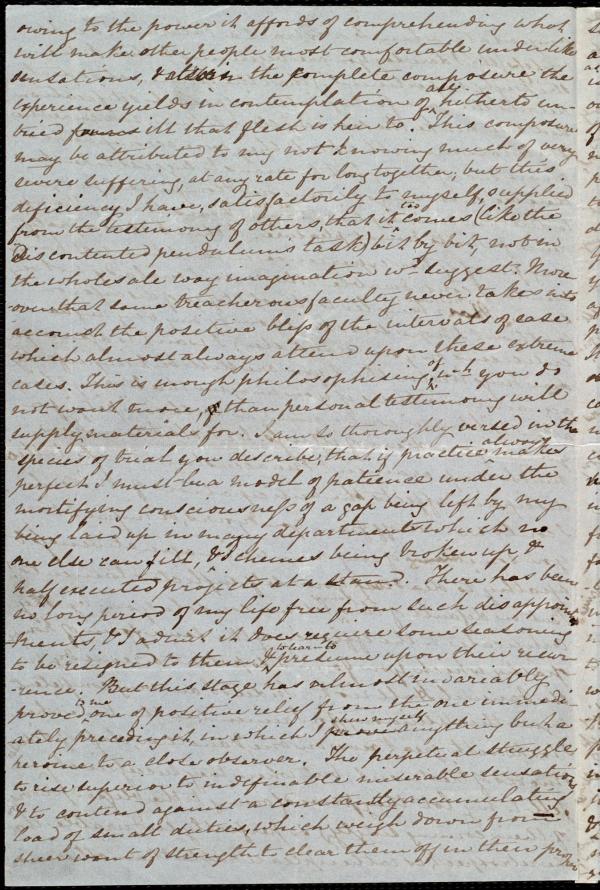 owing to the power it affords of comprehending what
will make other people most comfortable under like
sensations, & also in the complete composure the
experience yields in contemplation of any hitherto un-
tried ill that flesh is heir to. This composure
may be attributed to my not knowing much of very
severe suffering, at any rate for long together, but this
deficiency I have, satisfactorily to myself, supplied
from the testimony of others, that it comes (like the
Discontented pendulum's task) bit by bit, not in
the wholesale way imagination wd suggest. More
over that same treacherous faculty never takes into
account the positive bliss of the intervals of ease
which almost always attend upon these extreme
cases. This is enough philosophising of wh you do
not want more, than personal testimony will
supply materials for. I am so thoroughly versed in the
species of trial you describe, that if practice always makes
perfect I must be a model of patience under the
mortifying consciousness of a gap being left by my
being laid up in many departments which no
one else can fill, & schemes being broken up, &
half executed projects at a stand. There has been
no long period of my life free from such disappoint
-ments, & I admit it does require some seasoning
to be resigned to them & to learn to presume upon their recur
-rence. But this stage has almost invariably
proved to me one of positive relief from the one immedi-
ately preceding it, in which I shew myself anything but a
heroine to a close observer. The perpetual struggle
to rise superior to indefinable miserable sensations
& to contend against a constantly accumulating
load of small duties, which weigh down from
sheer want of strength to clear them off in their proper